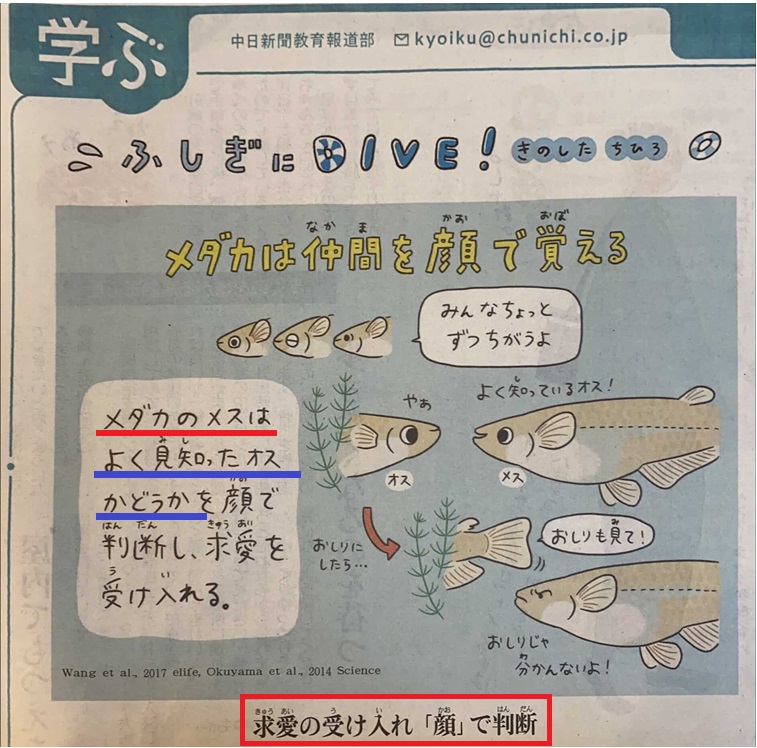 学ぶ
中日新聞教育報道部 kyoiku@chunichi.co.jp
ふしぎにDIVE! きのした ちひろ
メダカは仲間を顔で覚える
みんなちょっと
ずつちがうよ
メダカのメスは
よく見知ったオス
かどうかを顔で
判断し、求愛を
受け入れる。
やあ
よく知っているオス!
オス
メス
おしりに
したら…
おしりも見て!
おしりじゃ
分かんないよ!
Wang et al., 2017 elife, Okuyama et al., 2014 Science
求愛の受け入れ「顔」で判断